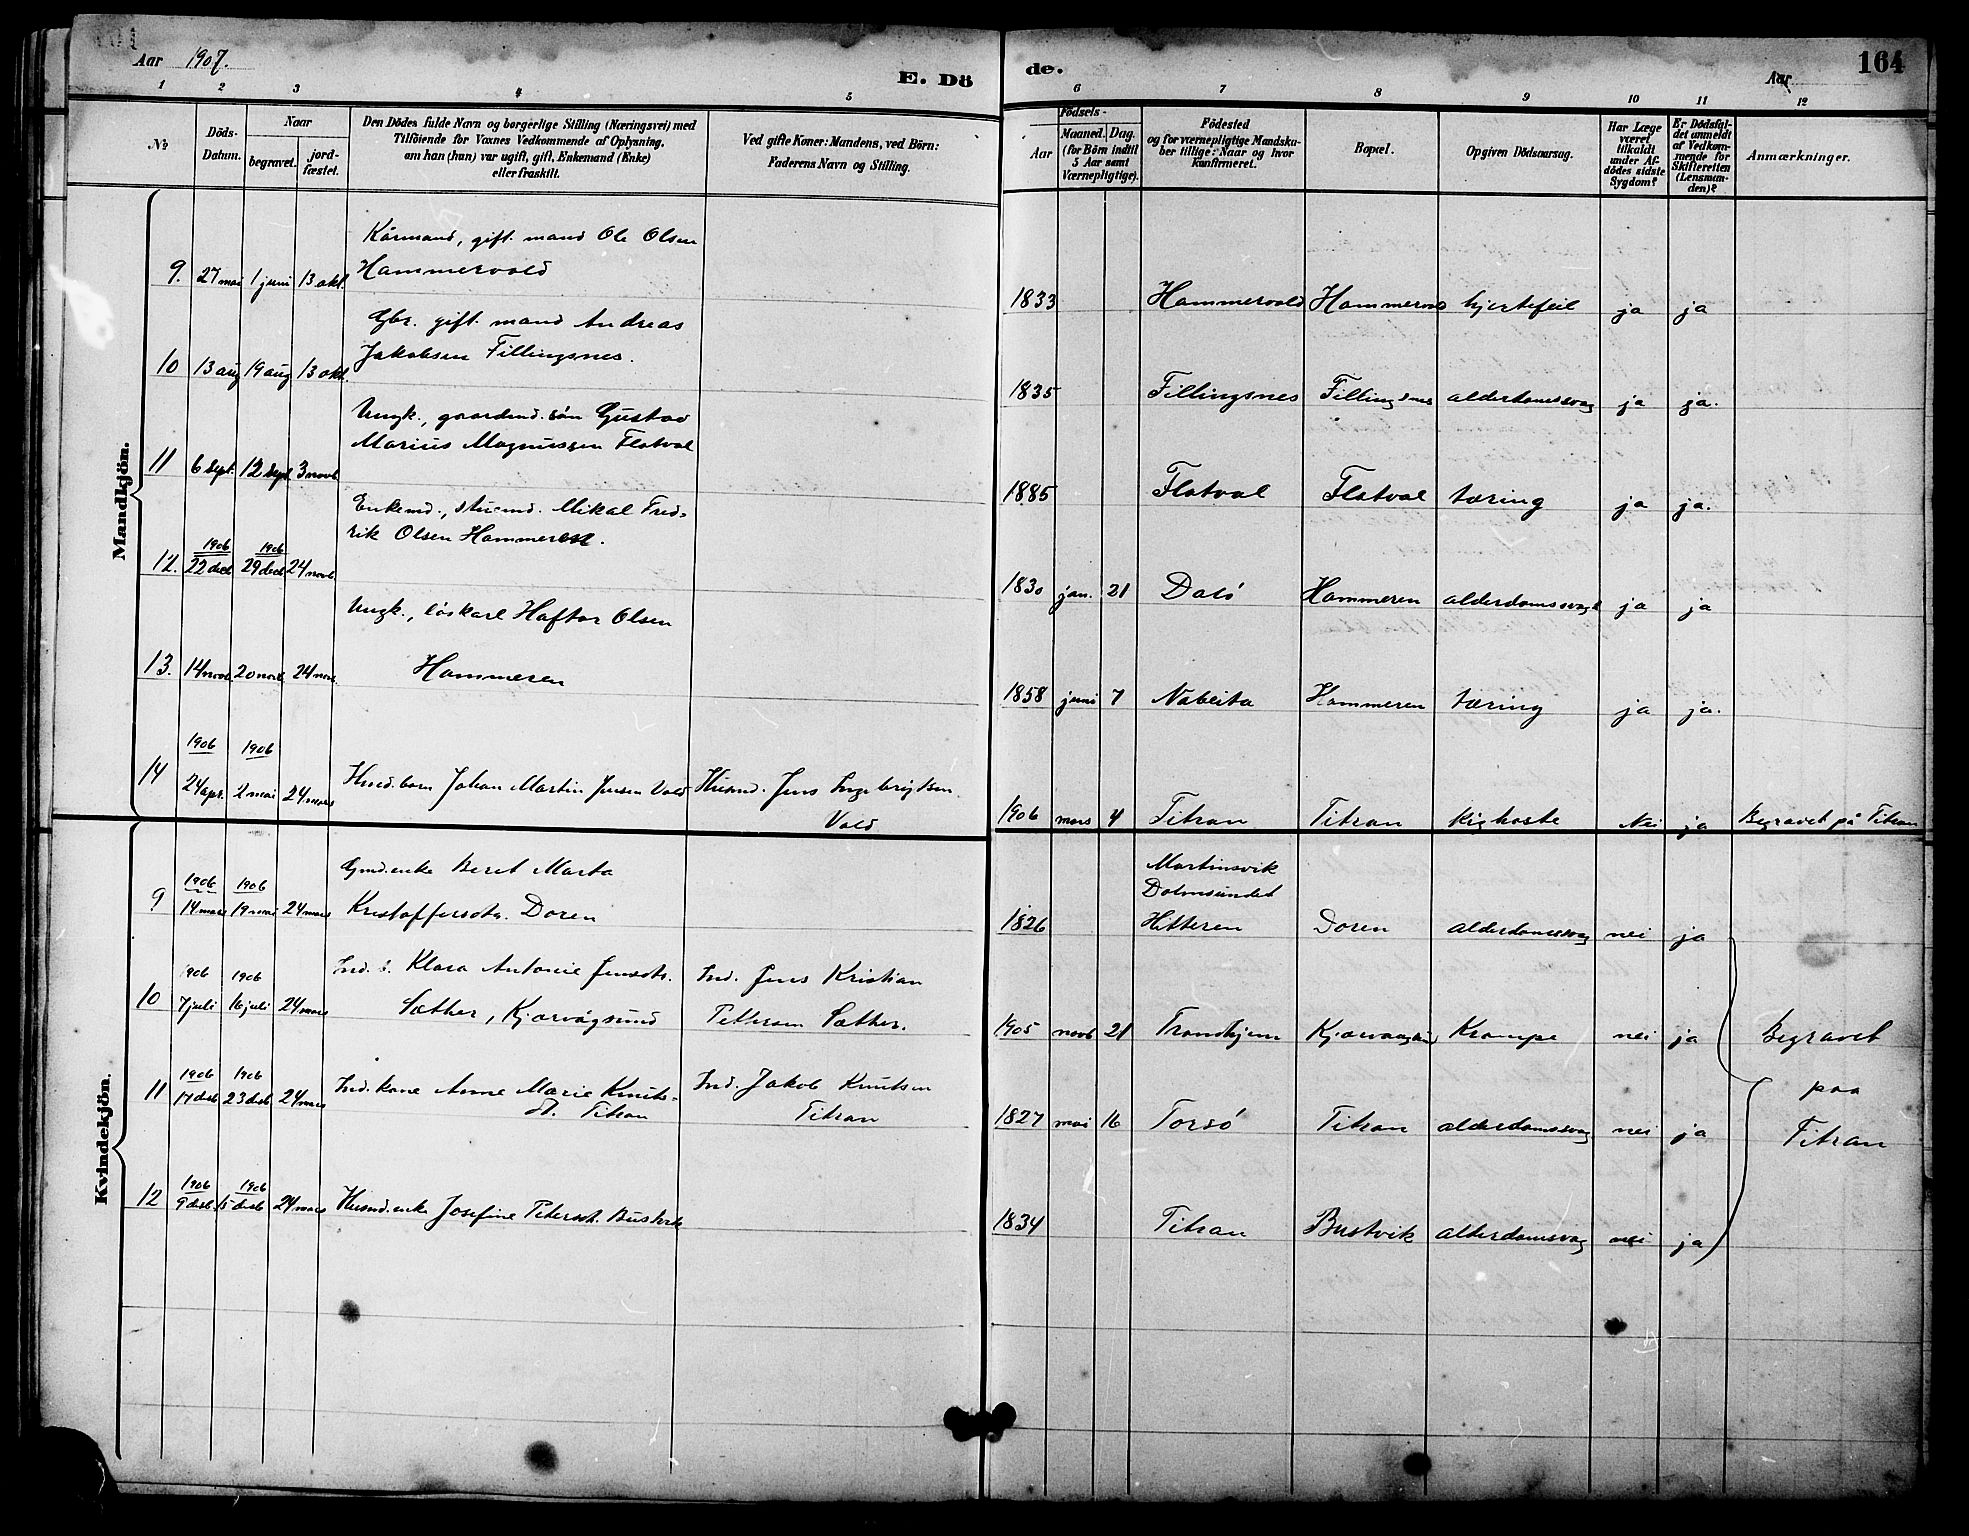 Aar 1907.
E. Dö
de.
Aar
164
1 2 3 4 5 6 7 8 9 10 11 12
№
Döds-
Datum.
Naar
begravet.
jord-
fæstet.
Den Dödes fulde Navn og borgerlige Stilling (Næringsvei) med
Tilföiende for Voxnes Vedkommende af Oplysning,
om han (hun) var ugift, gift, Enkemand (Enke)
eller fraskilt.
Ved gifte Koner: Mandens, ved Börn:
Faderens Navn og Stilling.
Födsels-
Aar
Maaned. Dag.
(for Börn indtil
5 Aar samt
Værnepligtige).
Födested
og for værnepligtige Mandska-
ber tillige: Naar og hvor
konfirmeret.
Bopæl.
Opgiven Dödsaarsag.
Har Læge
været
tilkaldt
under Af-
dödes sidste
Sygdom?
Er Dödsfal-
det anmeldt
af Vedkom-
mende for
Skifteretten
(Lensman-
den)?
Anmærkninger.
Mandkjön.
Kårmand, gift. mand Ole Olsen
9. 27 mai 1 juni 13 okt. Hammervold
1833 Hammervold Hammervold hjertefeil ja ja
Gbr. gift. mand Andreas
10 13 aug 19 aug 13 okt. Jakobsen Fillingsnes.
1835 Fillingsnes Fillingsnes alderdomssvag ja ja.
Ungk., gaardmd. søn Gustav
Marius Magnussen Flatval
11 6 sept. 12 sept 3 novb
1885 Flatval Flatval tæring ja ja.
Enkemd., stuemd. Mikal Fred-
rik Olsen Hammeren.
1906 1906
12. 22 decb 29 decb 24 novb
1830 jan. 21 Dalö Hammeren alderdomssvagh ja ja
Ungk., löskarl Haftor Olsen
13. 14 novb. 20 novb 24 novb. Hammeren
1858 juni 7 Nabeita Hammeren tæring ja ja.
1906 1906
14 24 apr. 2 mai 24 mars Husmd. barn Johan Martin Jensen Vold Husmd. Jens Ingebrigtsen
Vold
1906 mars 4 Titran Titran kighoste Nei ja Begravet på Titran
Kvindekjön.
Gmd. enke Beret Marta
1906 1906
9 14 mars 19 mai 24 mars Kristoffersdtr. Doren
Martinsvik
Dolmsundet
1826 Hitteren Doren alderdomssvag nei ja
Ind. b. Klara Antonie Jensdtr. Ind. Jens Kristian
1906 1906
10 7 juli 16 juli 24 mars Sæther, Kjørvågsund Pettersen Sæther.
1905 novb 21 Trondhjem Krampe nei ja Begravet
paa
Titran
1906 1906
11 17 decb 23 decb 24 mars Ind. kone Anne Marie Knuts- Ind. Jakob Knutsen
dt. Titran Titran
1827 mai 16 Torsö Titran alderdomssvag nei ja
1906 1906
12 9 decb. 15 decb 24 mars Husmd. enke Josefine Petersdt. Bustvik
1834 Titran Bustvik alderdomssvag nei ja